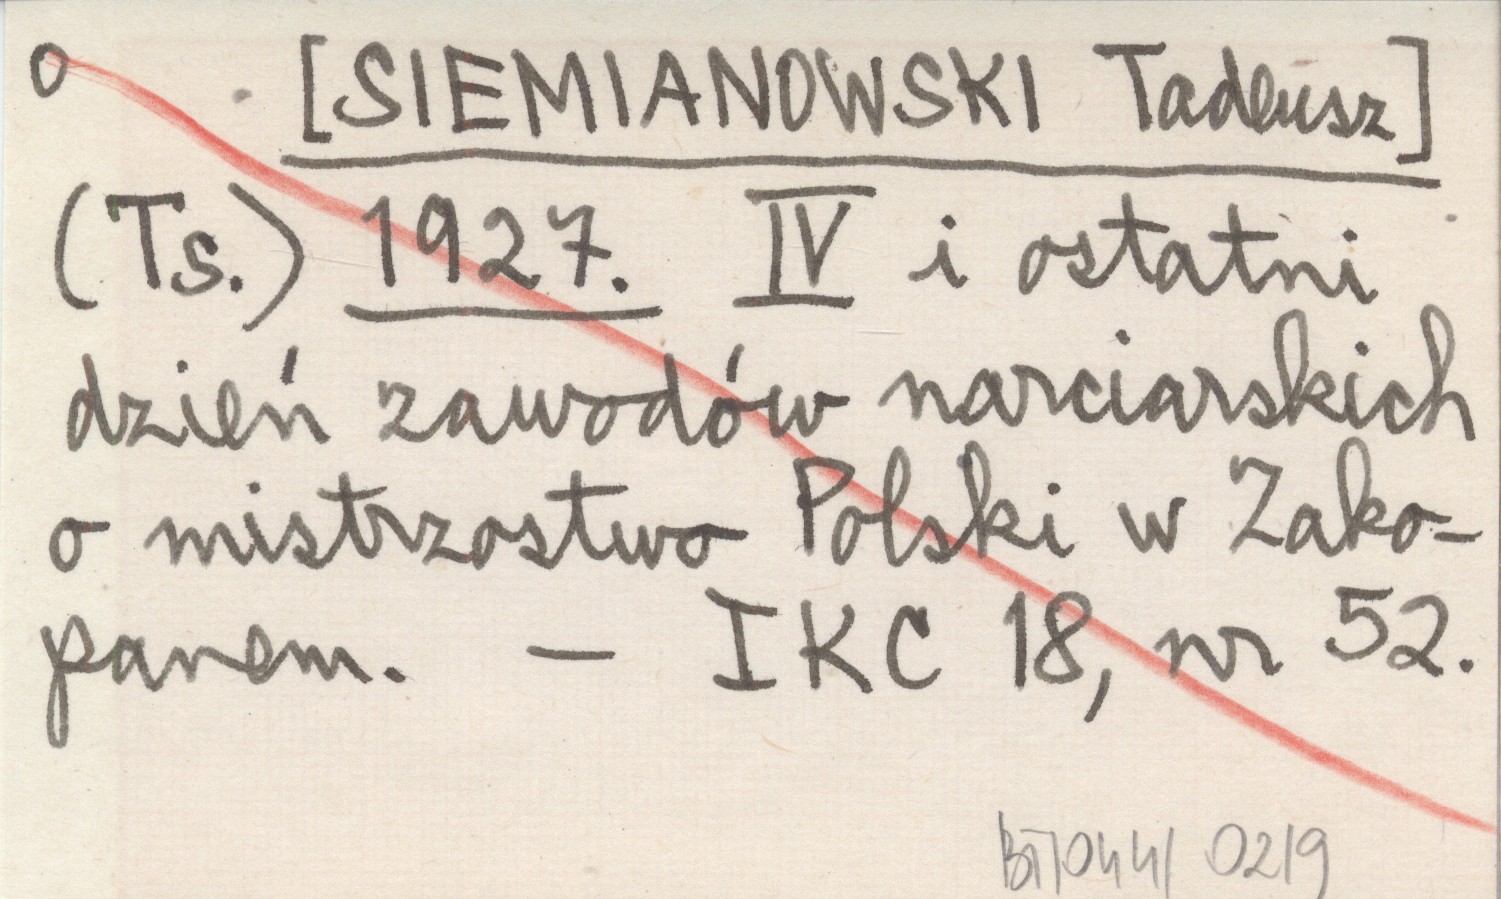 o [SIEMIANOWSKI Tadeusz]
(Ts.) 1927. IV i ostatni
dzień zawodów narciarskich
o mistrzostwo Polski w Zako-
panem. — IKC 18, nr 52.
BT/044/ 0219